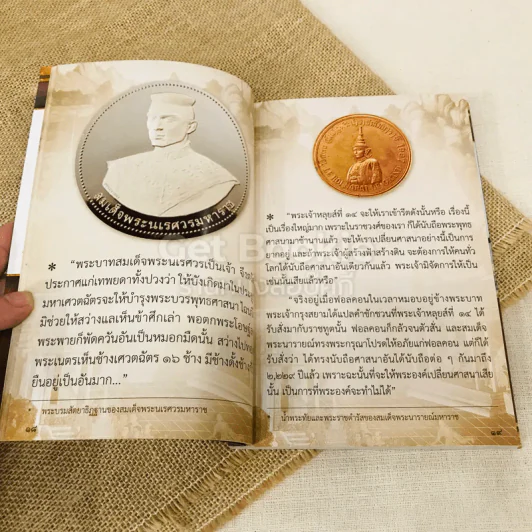 สมเด็จพระนเรศวรมหาราช
* "พระบาทสมเด็จพระนเรศวรเป็นเจ้า จึ
ประกาศแก่เทพยดาทั้งปวงว่า ให้บังเกิดมา
มหาเศวตฉัตรจะให้บำรุงพระบวรพุทธศาสนา
มิช่วยให้สว่างแลเห็นข้าศึกเล่า พอตกพระโอษฐ์
พระพายก็พัดควันอันเป็นหมอกมืดนั้น สว่างไป
พระเนตรเห็นช้างเศวตฉัตร ๑๖ ช้าง มีช้างดั้งช้าง
ยืนอยู่เป็นอันมาก..."
* พระบรมสัตยาธิฏฐานของสมเด็จพระนเรศวรมหาราช
๑๘
* "พระเจ้าหลุยส์ที่ ๑๔ จะให้เราเข้ารีตดังนั้นหรือ เรื่องนี้
เป็นเรื่องใหญ่มาก เพราะในราชวงศ์ของเรา ก็ได้นับถือพระพุทธ
ศาสนามาช้านานแล้ว จะให้เราเปลี่ยนศาสนาอย่างนี้เป็นการ
ยากอยู่ และถ้าพระเจ้าผู้สร้างฟ้าสร้างดิน จะต้องการให้คนทั่ว
โลกได้นับถือศาสนาอันเดียวกันแล้ว พระเจ้ามิจัดการให้เป็น
เช่นนั้นเสียแล้วหรือ"
"จริงอยู่เมื่อฟอลคอนในเวลาหมอบอยู่ข้างพระบาท
พระเจ้ากรุงสยามได้แปลคำชักชวนที่พระเจ้าหลุยส์ที่ ๑๔ ได้
รับสั่งมากับราชทูตนั้น ฟอลคอนก็กลัวจนตัวสั่น และสมเด็จ
พระนารายณ์ทรงพระกรุณาโปรดให้อภัยแก่ฟอลคอน แต่ก็ได้
รับสั่งว่า ได้ทรงนับถือศาสนาอันได้นับถือต่อ ๆ กันมาถึง
๒,๒๒๙ ปีแล้ว เพราะฉะนั้นที่จะให้พระองค์เปลี่ยนศาสนาเสีย
นั้น เป็นการที่พระองค์จะทำไม่ได้"
น้ำพระทัยและพระราชดำรัสของสมเด็จพระนารายณ์มหาราช
๑๙